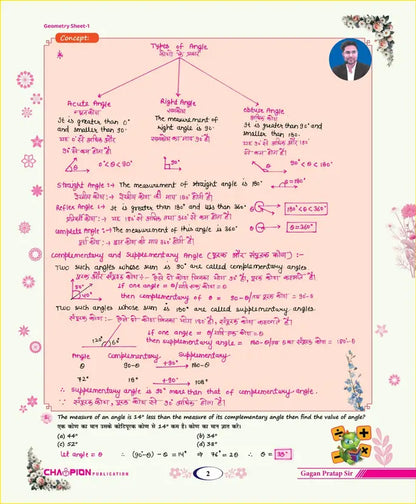 Geometry Sheet-1
Concept:
Types of Angle
कोणों के प्रकार
Acute Angle
न्यूनकोण
It is greater than 0°
and smaller than 90°
यह 0° से अधिक और
90° से कम होता है
0° < θ < 90°
Right Angle
समकोण
The measurement of
right angle is 90°
समकोण का माप 90° है।
90°
obtuse Angle
अधिक कोण
It is greater than 90° and
smaller than 180°
यह 90° से अधिक और 180°
से कम होता है।
90° < θ < 180°
Straight Angle :→ The measurement of straight angle is 180°
θ = 180°
ऋजुकोण की माप 180° होती है।
Reflex Angle :→ It is greater than 180° and less than 360°
180° < θ < 360°
यह 180° से अधिक और 360° से कम होता है।
Complete Angle :→ The measurement of this angle is 360°
θ = 360°
पूर्ण कोण :→ इस कोण की माप 360° होती है।
Complementary and Supplementary Angle (पूरक और संपूरक कोण) :-
Two such angles whose sum is 90° are called complementary angles.
50°
40°
if one angle = θ/यदि एक कोण = θ
then complement of θ = 90-θ/
Two such angles whose sum is 180° are called supplementary angles.
120° 60°
if one angle = θ/यदि एक कोण = θ
then supplementary angle = 180-θ/
Angle Complementary Supplementary
θ 90-θ +90° 180-θ
72° 18° +90° 108°
∴ Supplementary angle is 90° more than that of complementary angle.
∴ संपूरक कोण, पूरक कोण से 90° अधिक होता है।
The measure of an angle is 14° less than the measure of its complementary angle then find the value of angle?
एक कोण का मान उसके कोटिपूरक कोण से 14° कम है। कोण का मान ज्ञात करें।
(a) 44° (b) 34°
(c) 52° (d) 38°
Let angle = θ ∴ (90-θ) - θ = 14° ⇒ 76° = 2θ ∴ θ = 38°
CHAMPION PUBLICATION
2
Gagan Pratap Sir